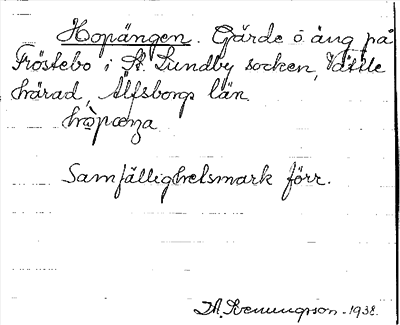 Hopängen. Gärde o äng på
Fröstebo i St. Lundby socken, Vättle
härad, Älfsborgs län.
Samfällighetsmark förr.
1938.